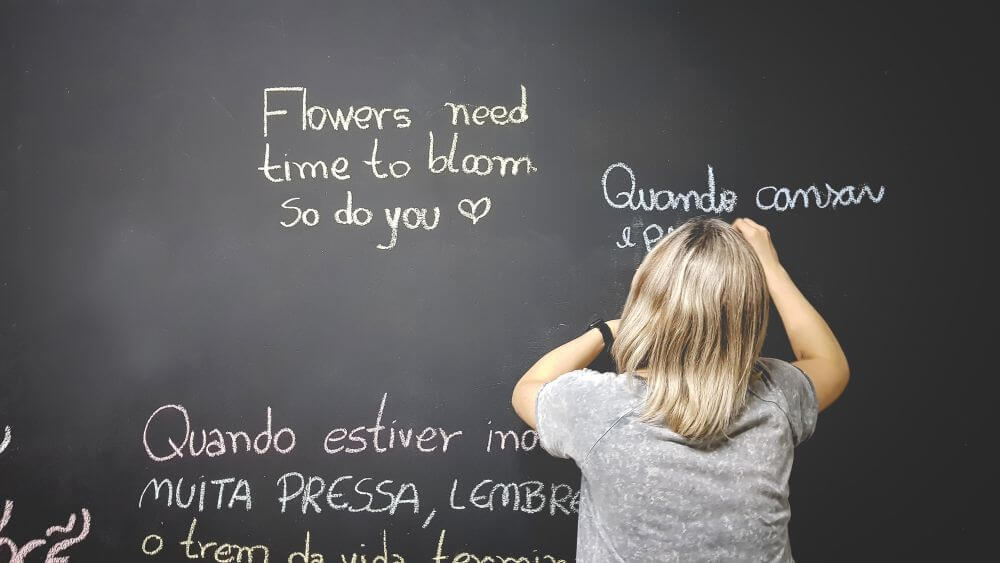 Flowers need
time to bloom
so do you
Quando cansar
e
Quando estiver
MUITA PRESSA,
o trem da vida